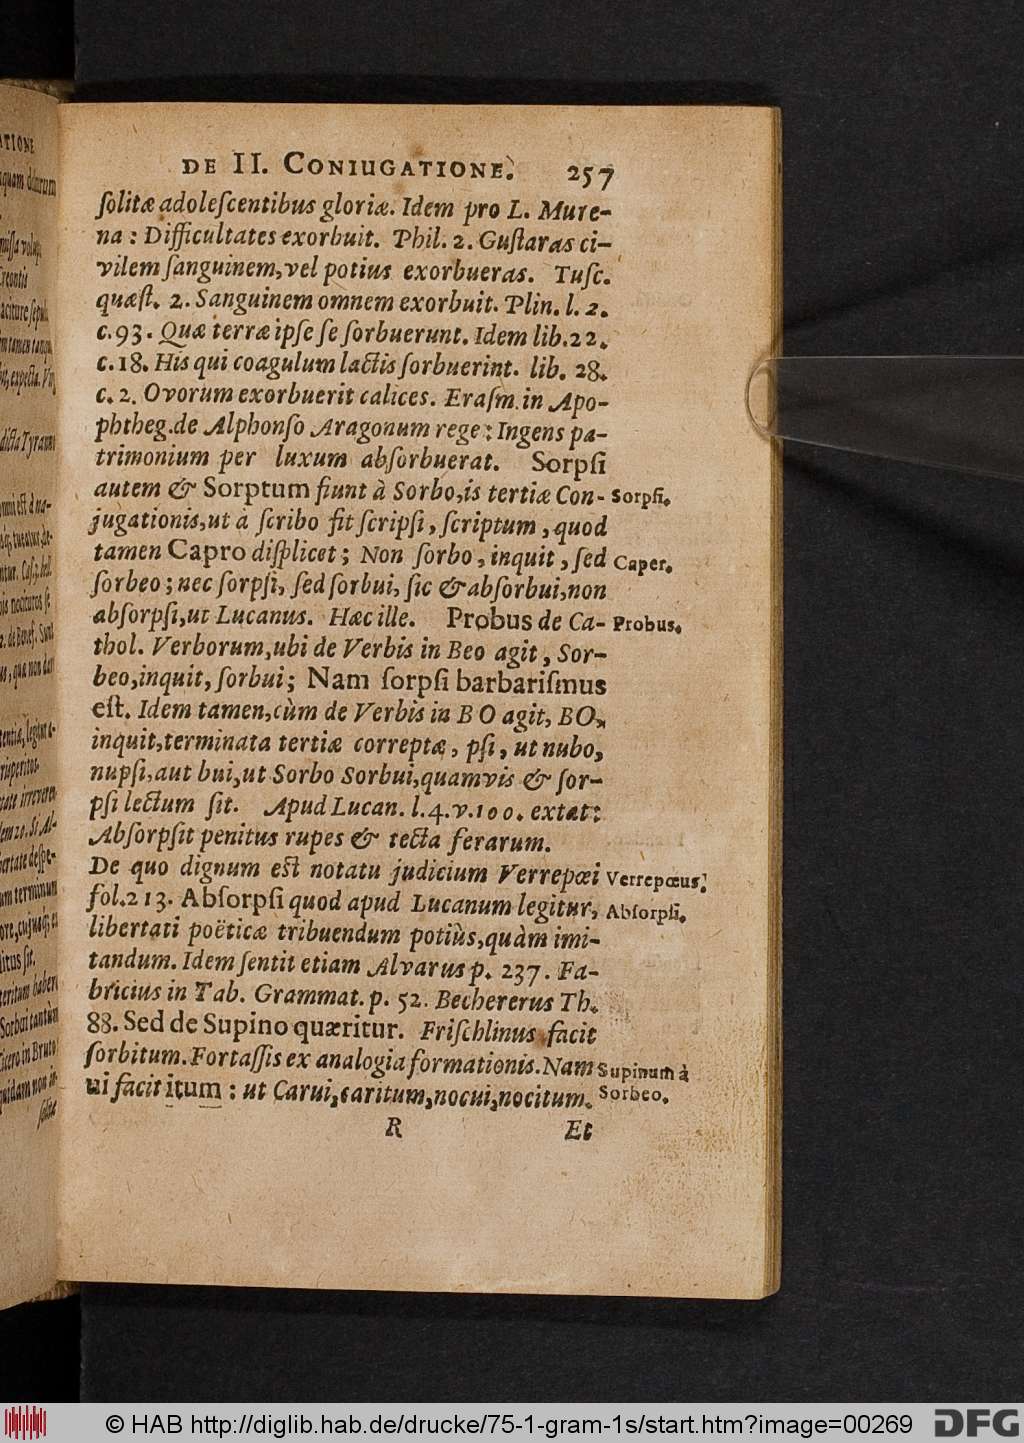 DE II. CONIUGATIONE. 257
ſolitæ adoleſcentibus gloriæ. Idem pro L. Mure-
na: Difficultates exorbuit. Phil. 2. Guſtaras ci-
vilem ſanguinem, vel potius exorbueras. Tuſc.
quæſt. 2. Sanguinem omnem exorbuit. Plin. l. 2.
c. 93. Quæ terræ ipſe ſe ſorbuerunt. Idem lib. 22.
c. 18. His qui coagulum lactis ſorbuerint. lib. 28.
c. 2. Ovorum exorbuerit calices. Eraſm. in Apo-
phtheg. de Alphonſo Aragonum rege: Ingens pa-
trimonium per luxum abſorbuerat. Sorpſi
autem & Sorptum fiunt à Sorbo, is tertiæ Con- Sorpſi.
jugationis, ut a ſcribo fit ſcripſi, ſcriptum, quod
tamen Capro diſplicet; Non ſorbo, inquit, ſed Caper.
ſorbeo; nec ſorpſi, ſed ſorbui, ſic & abſorbui, non
abſorpſi, ut Lucanus. Hæc ille. Probus de Ca- Probus.
thol. Verborum, ubi de Verbis in Beo agit, Sor-
beo, inquit, ſorbui; Nam ſorpſi barbariſmus
eſt. Idem tamen, cùm de Verbis in BO agit, BO,
inquit, terminata tertiæ correptæ, pſi, ut nubo,
nupſi, aut bui, ut Sorbo Sorbui, quamvis & ſor-
pſi lectum ſit. Apud Lucan. l. 4. v. 100. extat:
Abſorpſit penitus rupes & tecta ferarum.
De quo dignum eſt notatu judicium Verrepœi Verrepœus.
fol. 213. Abſorpſi quod apud Lucanum legitur, Abſorpſi.
libertati poëticæ tribuendum potiùs, quàm imi-
tandum. Idem ſentit etiam Alvarus p. 237. Fa-
bricius in Tab. Grammat. p. 52. Bechererus Th.
88. Sed de Supino quæritur. Friſchlinus facit
ſorbitum. Fortaſſis ex analogia formationis. Nam Supinum à
ui facit itum: ut Carui, caritum, nocui, nocitum. Sorbeo.
R Et
© HAB http://diglib.hab.de/drucke/75-1-gram-1s/start.htm?image=00269 DFG